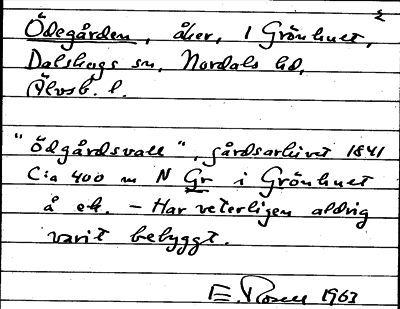 Ödegården, åker, i Grönhult,
Dalskogs sn, Nordals hd,
Älvsb. l.
"ödgårdsvall", gårdsarkivet 1841
C:a 400 m N Gr i Grönhult
å ek. - Har veterligen aldrig
varit bebyggt.
E. Rosell 1963